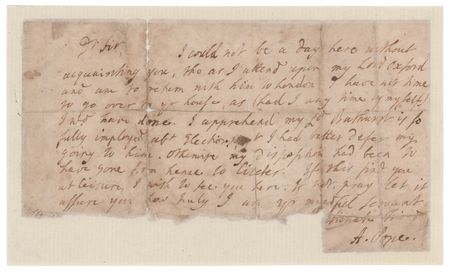 Dr Sir, I could not be a day here without
acquainting you, tho as I attend upon my Lord Oxford
and am to return with him to London I have not time
to go over to yr house as (had I any time by myself)
I wd have done. I apprehend my Ld Bathurst is so
fully imployed abt Elections, that I had better defer my
going to him. Otherwise my disposition had been to
have gone from hence to Cirester. If this find you
at leisure, I wish to see you here. If not, pray let it
assure you how truly I am yr mindful servant
A. Pope.